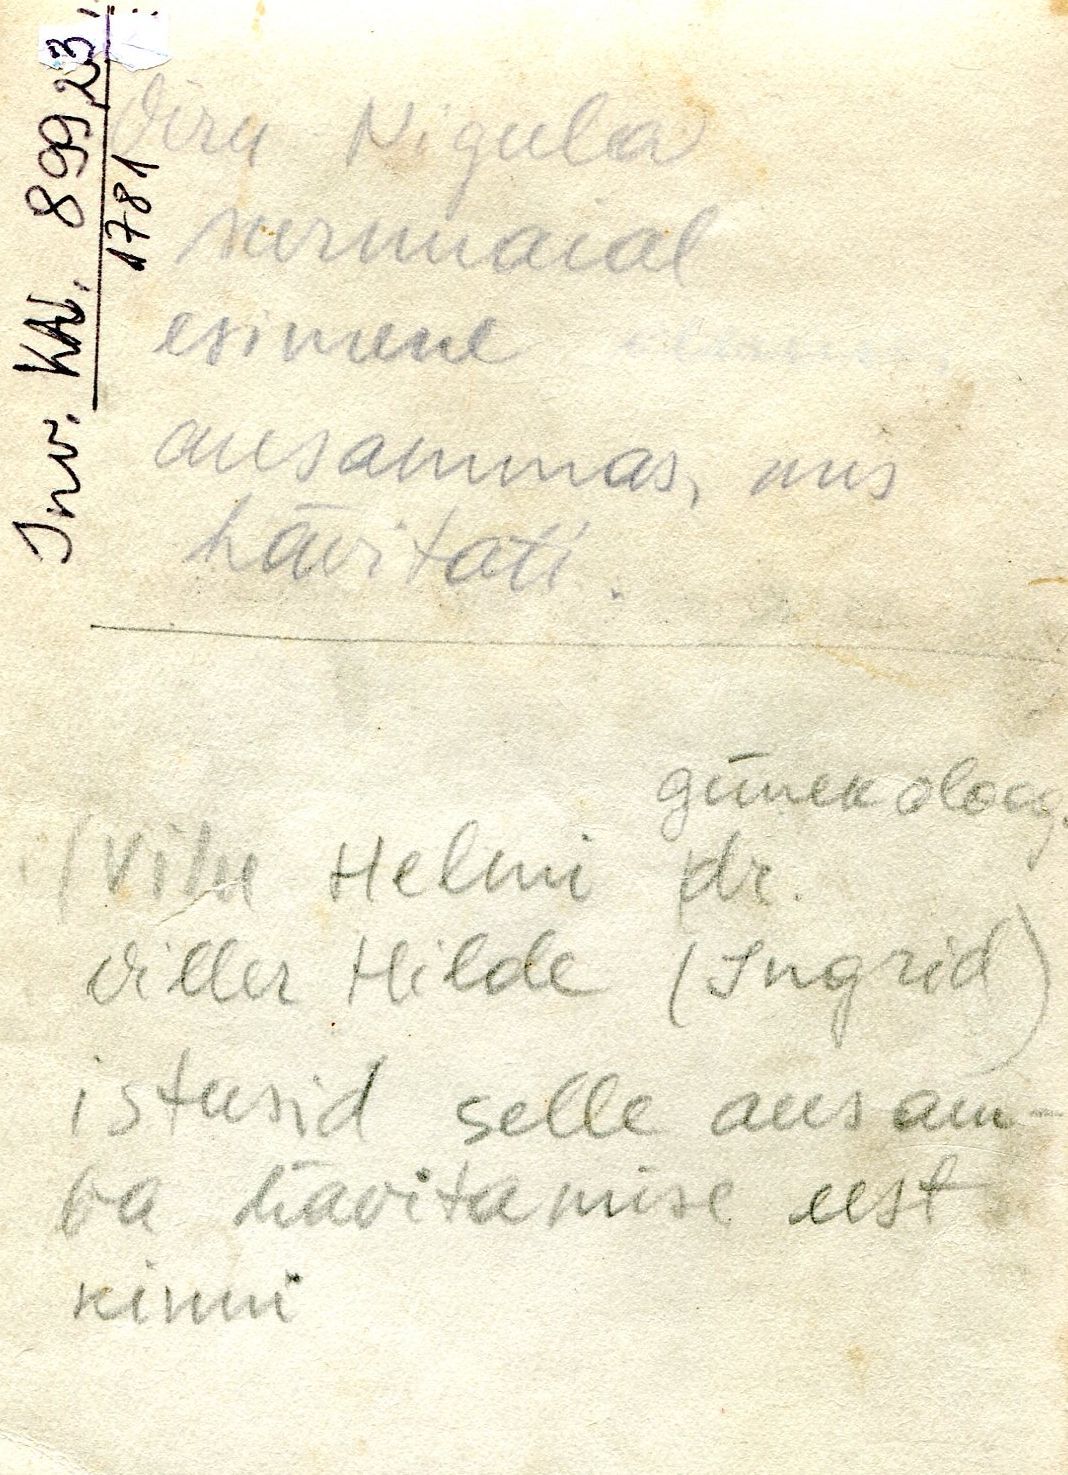 Inv. KM. 899,23
1781
Viru Nigula
surnuaial
esimene
ausammas, mis
hävitati.
günekoloog.
(Vilu Helmi dr.
Viller Hilde (Ingrid)
istusid selle ausam-
ba hävitamise eest
kinni